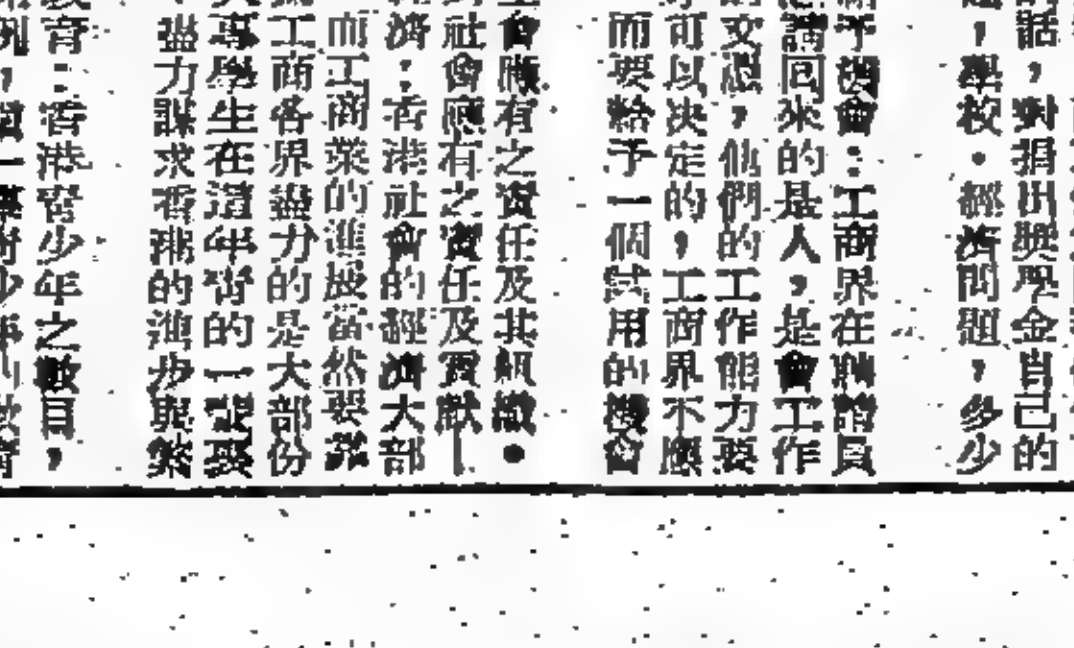 的話，對捐出獎學金自己的
，學校．經濟問題，多少
予機會：工商界在聘請員
請回來的是人，是會工作
的文憑，他們的工作能力要
可以决定的，工商界不應
而要給予一個試用的機會
會應有之責任及其組織．
社會應有之責任及貢獻—
濟：香港社會的經濟大部
而工商業的進展當然要靠
工商各界盡力的是大部份
專學生在這年青的一
盡力謀求香港的進步與繁
育：香港青少年之數目，